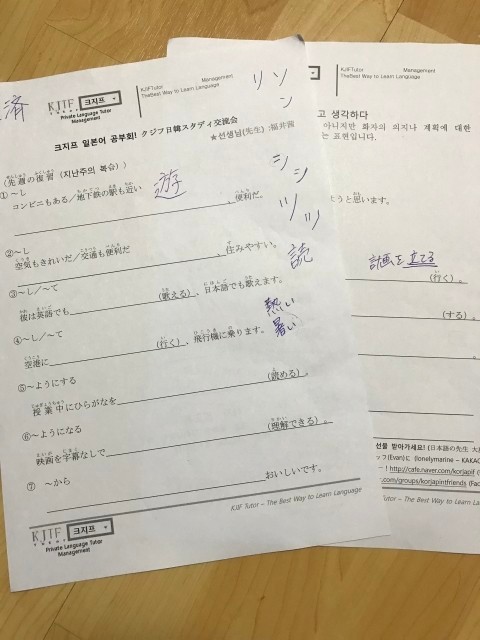 済
KJIF
크지프
TUTORING
Private Language Tutor
Management
KJIFTutor Management
TheBest Way to Learn Language
リソ
ン
크지프 일본어 공부회! クジフ日韓スタディ交流会
★선생님(先生) :福井茜
〈先週の復習 (지난주의 복습)〉
①～し
コンビニもある/地下鉄の駅も近い
遊
、便利だ。
シン
ツッ
②～し
空気もきれいだ/交通も便利だ
、住みやすい。
読
③～し/～て
彼は英語でも(歌える)、日本語でも歌えます。
熱い
暑い
④～し/～て
空港に(行く)、飛行機に乗ります。
⑤～ようにする
授業中にひらがなを(読める)。
⑥～ようになる
映画を字幕なしで(理解できる)。
⑦ ～から
おいしいです。
KJIF Tutor – The Best Way to Learn Language
KJIF
크지프
Private Language Tutor
Management
KJIFTutor Management
TheBest Way to Learn Language
고 생각하다
아니지만 화자의 의지나 계획에 대한
는 표현입니다.
ようと思います。
計画を立てる
(行く)。
(する)。
선물 받아가세요! (日本語の先生
ッフ(Evan)に (lonelymarine – KAKAO
– ! http://cafe.naver.com/korjapif
.com/groups/korjapintfriends (Fac
Tutor – The Best Way to Learn Language